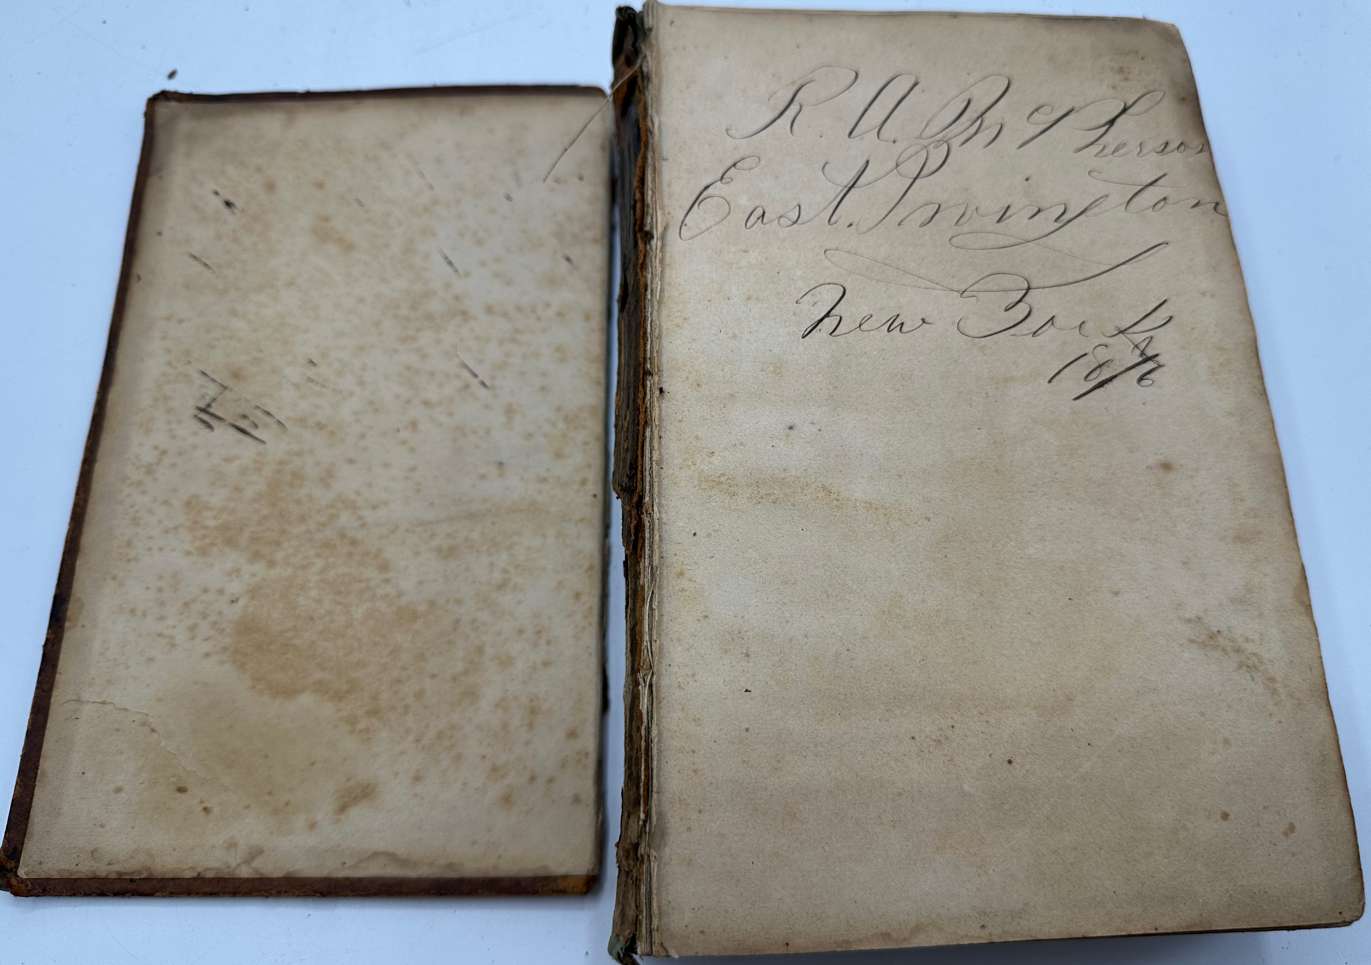 R. A. McPherson
East. Irvington
New York
18